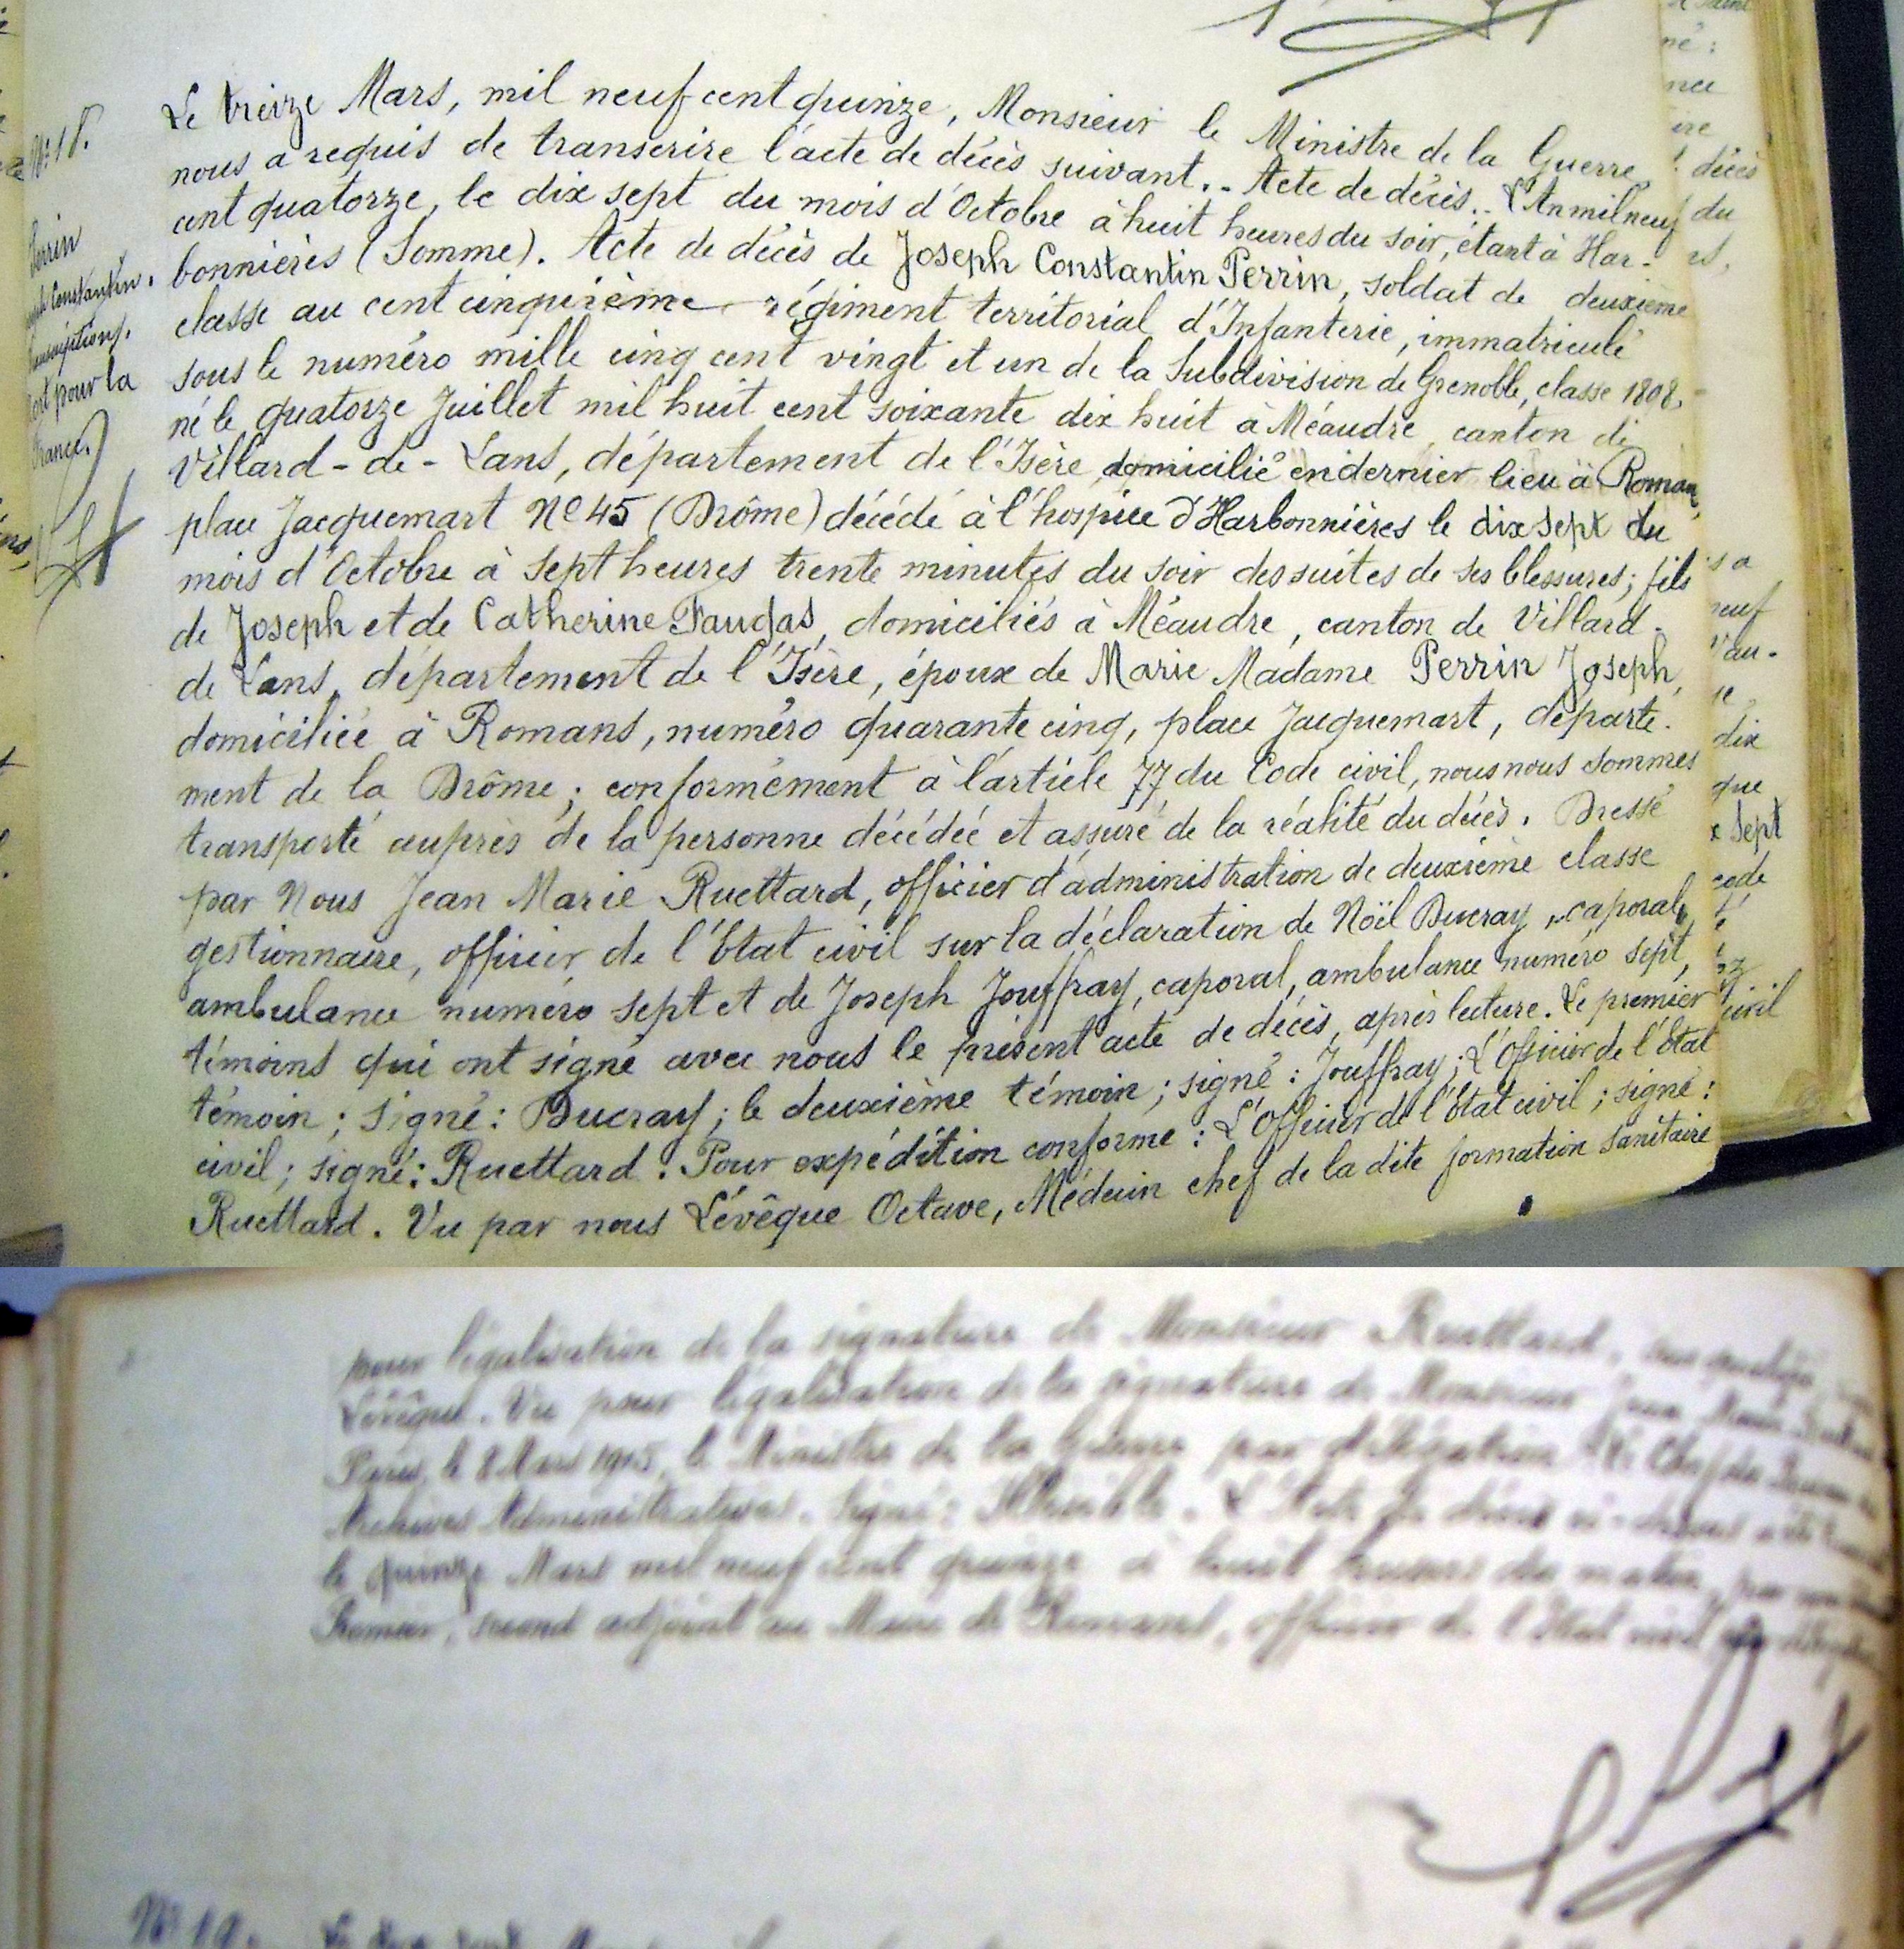 N° 18.
Perrin
Joseph Constantin.
Transcription.
Mort pour la
France.
Le treize Mars, mil neuf cent quinze, Monsieur le Ministre de la Guerre
nous a requis de transcrire l'acte de décès suivant.. Acte de décès.. L'An mil neuf
cent quatorze, le dix sept du mois d'Octobre à huit heures du soir, étant à Har-
bonnières (Somme). Acte de décès de Joseph Constantin Perrin, soldat de deuxième
classe au cent cinquième régiment territorial d'Infanterie, immatriculé
sous le numéro mille cinq cent vingt et un de la Subdivision de Grenoble, classe 1898.
né le quatorze Juillet mil huit cent soixante dix huit à Méaudre, canton de
Villard-de-Lans, département de l'Isère, domicilié en dernier lieu à Romans,
place Jacquemart N° 45 (Drôme) décédé à l'hospice d'Harbonnières le dix sept du
mois d'Octobre à sept heures trente minutes du soir des suites de ses blessures; fils
de Joseph et de Catherine Faugas, domiciliés à Méaudre, canton de Villard-
de Lans, département de l'Isère, époux de Marie Madame Perrin Joseph,
domiciliée à Romans, numéro quarante cinq, place Jacquemart, départe-
ment de la Drôme; conformément à l'article 77 du Code civil, nous nous sommes
transporté auprès de la personne décédée et assuré de la réalité du décès. Dressé
par Nous Jean Marie Ruettard, officier d'administration de deuxième classe
gestionnaire, officier de l'État civil sur la déclaration de Noël Ducray, caporal,
ambulance numéro sept et de Joseph Jouffray, caporal, ambulance numéro sept,
témoins qui ont signé avec nous le présent acte de décès, après lecture. Le premier
témoin; signé: Ducray; le deuxième témoin; signé: Jouffray; L'Officier de l'État
civil; signé: Ruettard. Pour expédition conforme: L'Officier de l'État civil; signé:
Ruettard. Vu par nous Lévêque Octave, Médecin chef de la dite formation sanitaire
pour légalisation de la signature de Monsieur Ruettard,
Lévêque. Vu pour légalisation de la signature de Monsieur
Paris, le 8 Mars 1915, le Ministre de la Guerre par délégation Le Chef du Bureau des
Archives Administratives. Signé: Illisible. L'Acte de décès ci-dessus a été
le quinze Mars mil neuf cent quinze à huit heures du matin, par
second adjoint au Maire de Romans, officier de l'État civil
N° 19.